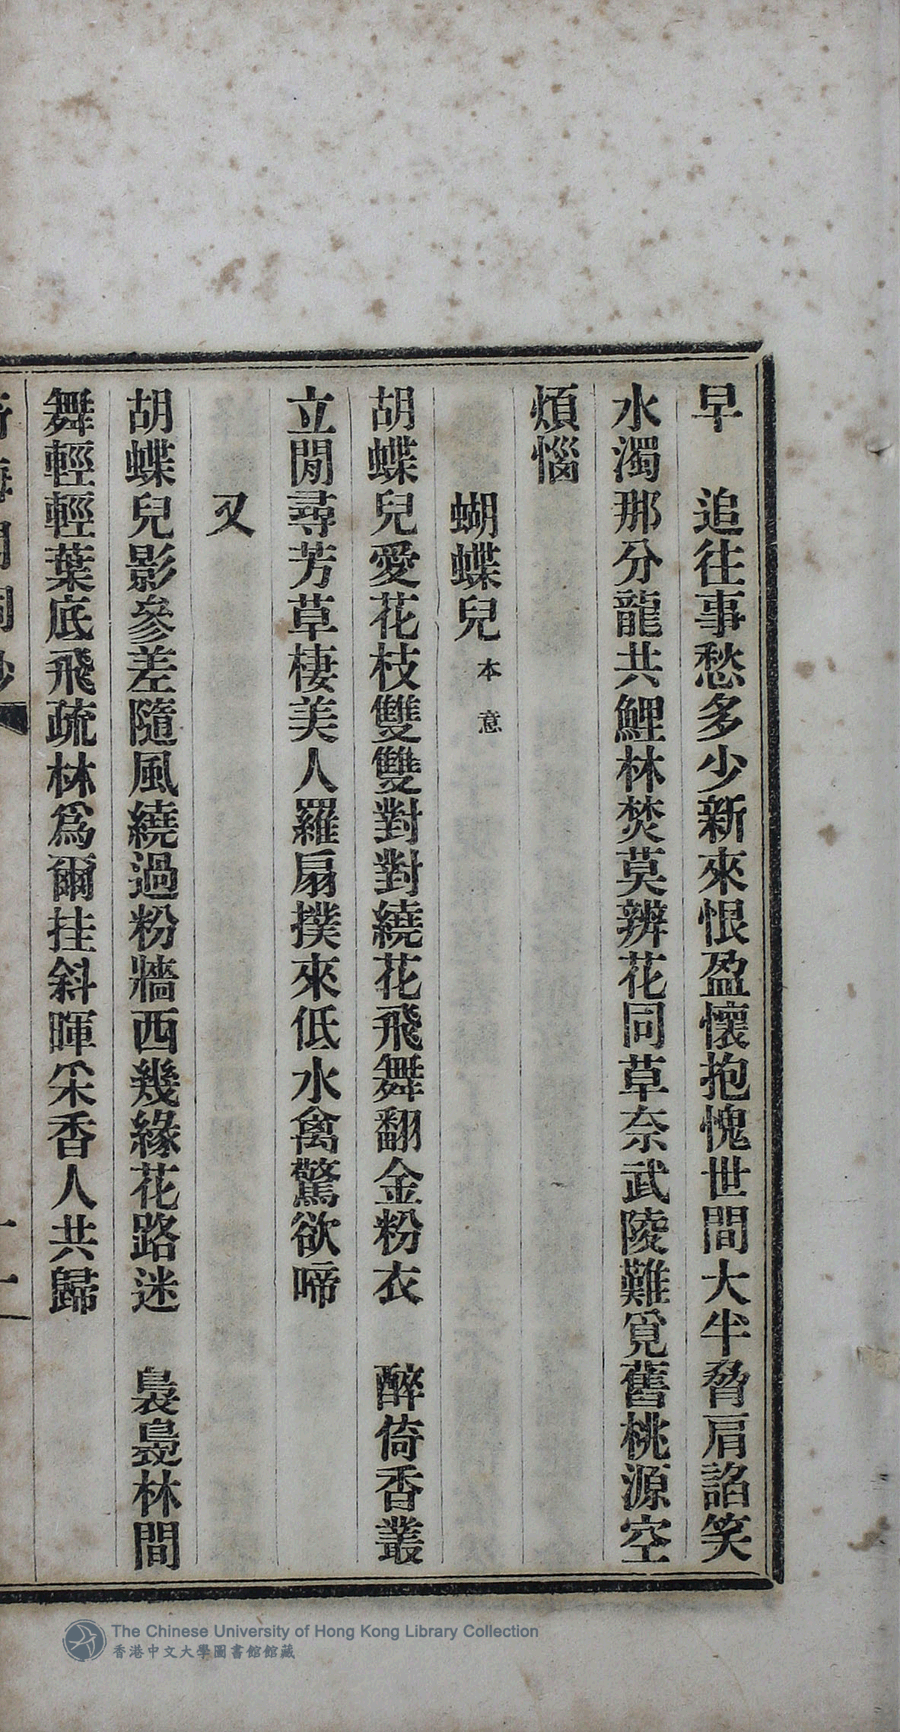 早　追往事愁多少新來恨盈懷抱愧世間大半脅肩諂笑
水濁那分龍共鯉林焚莫辨花同草奈武陵難覓舊桃源空
煩惱
蝴蝶兒本意
胡蝶兒愛花枝雙雙對對繞花飛舞翻金粉衣　醉倚香叢
立閒尋芳草棲美人羅扇撲來低水禽驚欲啼
又
胡蝶兒影參差隨風繞過粉牆西幾緣花路迷　裊裊林間
舞輕輕葉底飛疏林爲爾挂斜暉采香人共歸
The Chinese University of Hong Kong Library Collection
香港中文大學圖書館館藏